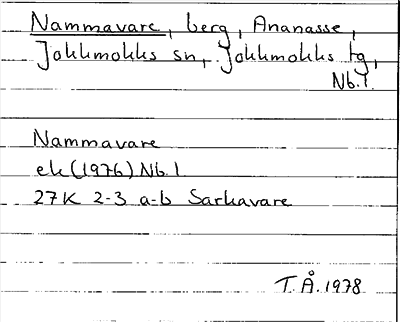 Nammavare, berg, Ananasse,
Jokkmokks sn, Jokkmokks tg,
Nb.l.
Nammavare
ek(1976) Nb.l
27K 2-3 a-b Sarkavare
T.Å.1978